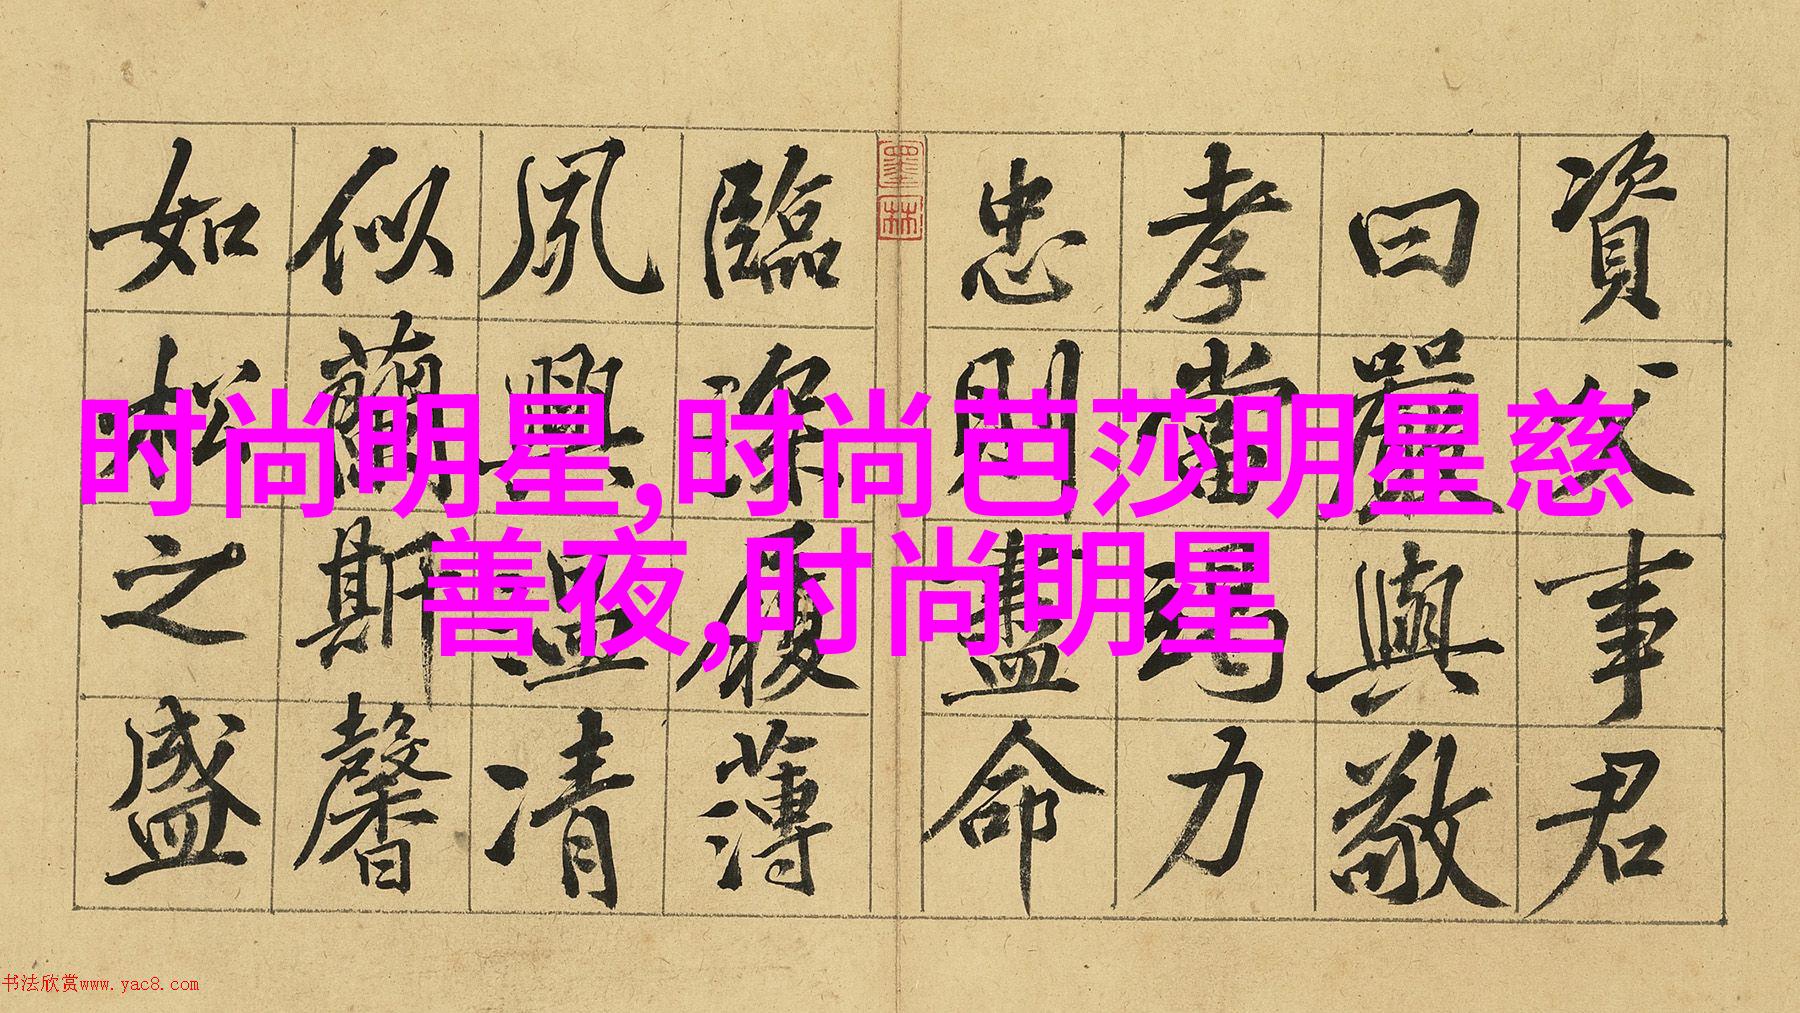 資父事君
曰嚴與敬
孝當竭力
忠則盡命
臨深履薄
夙興溫凊
似蘭斯馨
如松之盛
墨林
时尚明星,时尚芭莎明星慈
善夜,时尚明星
书法欣赏www.yac8.com